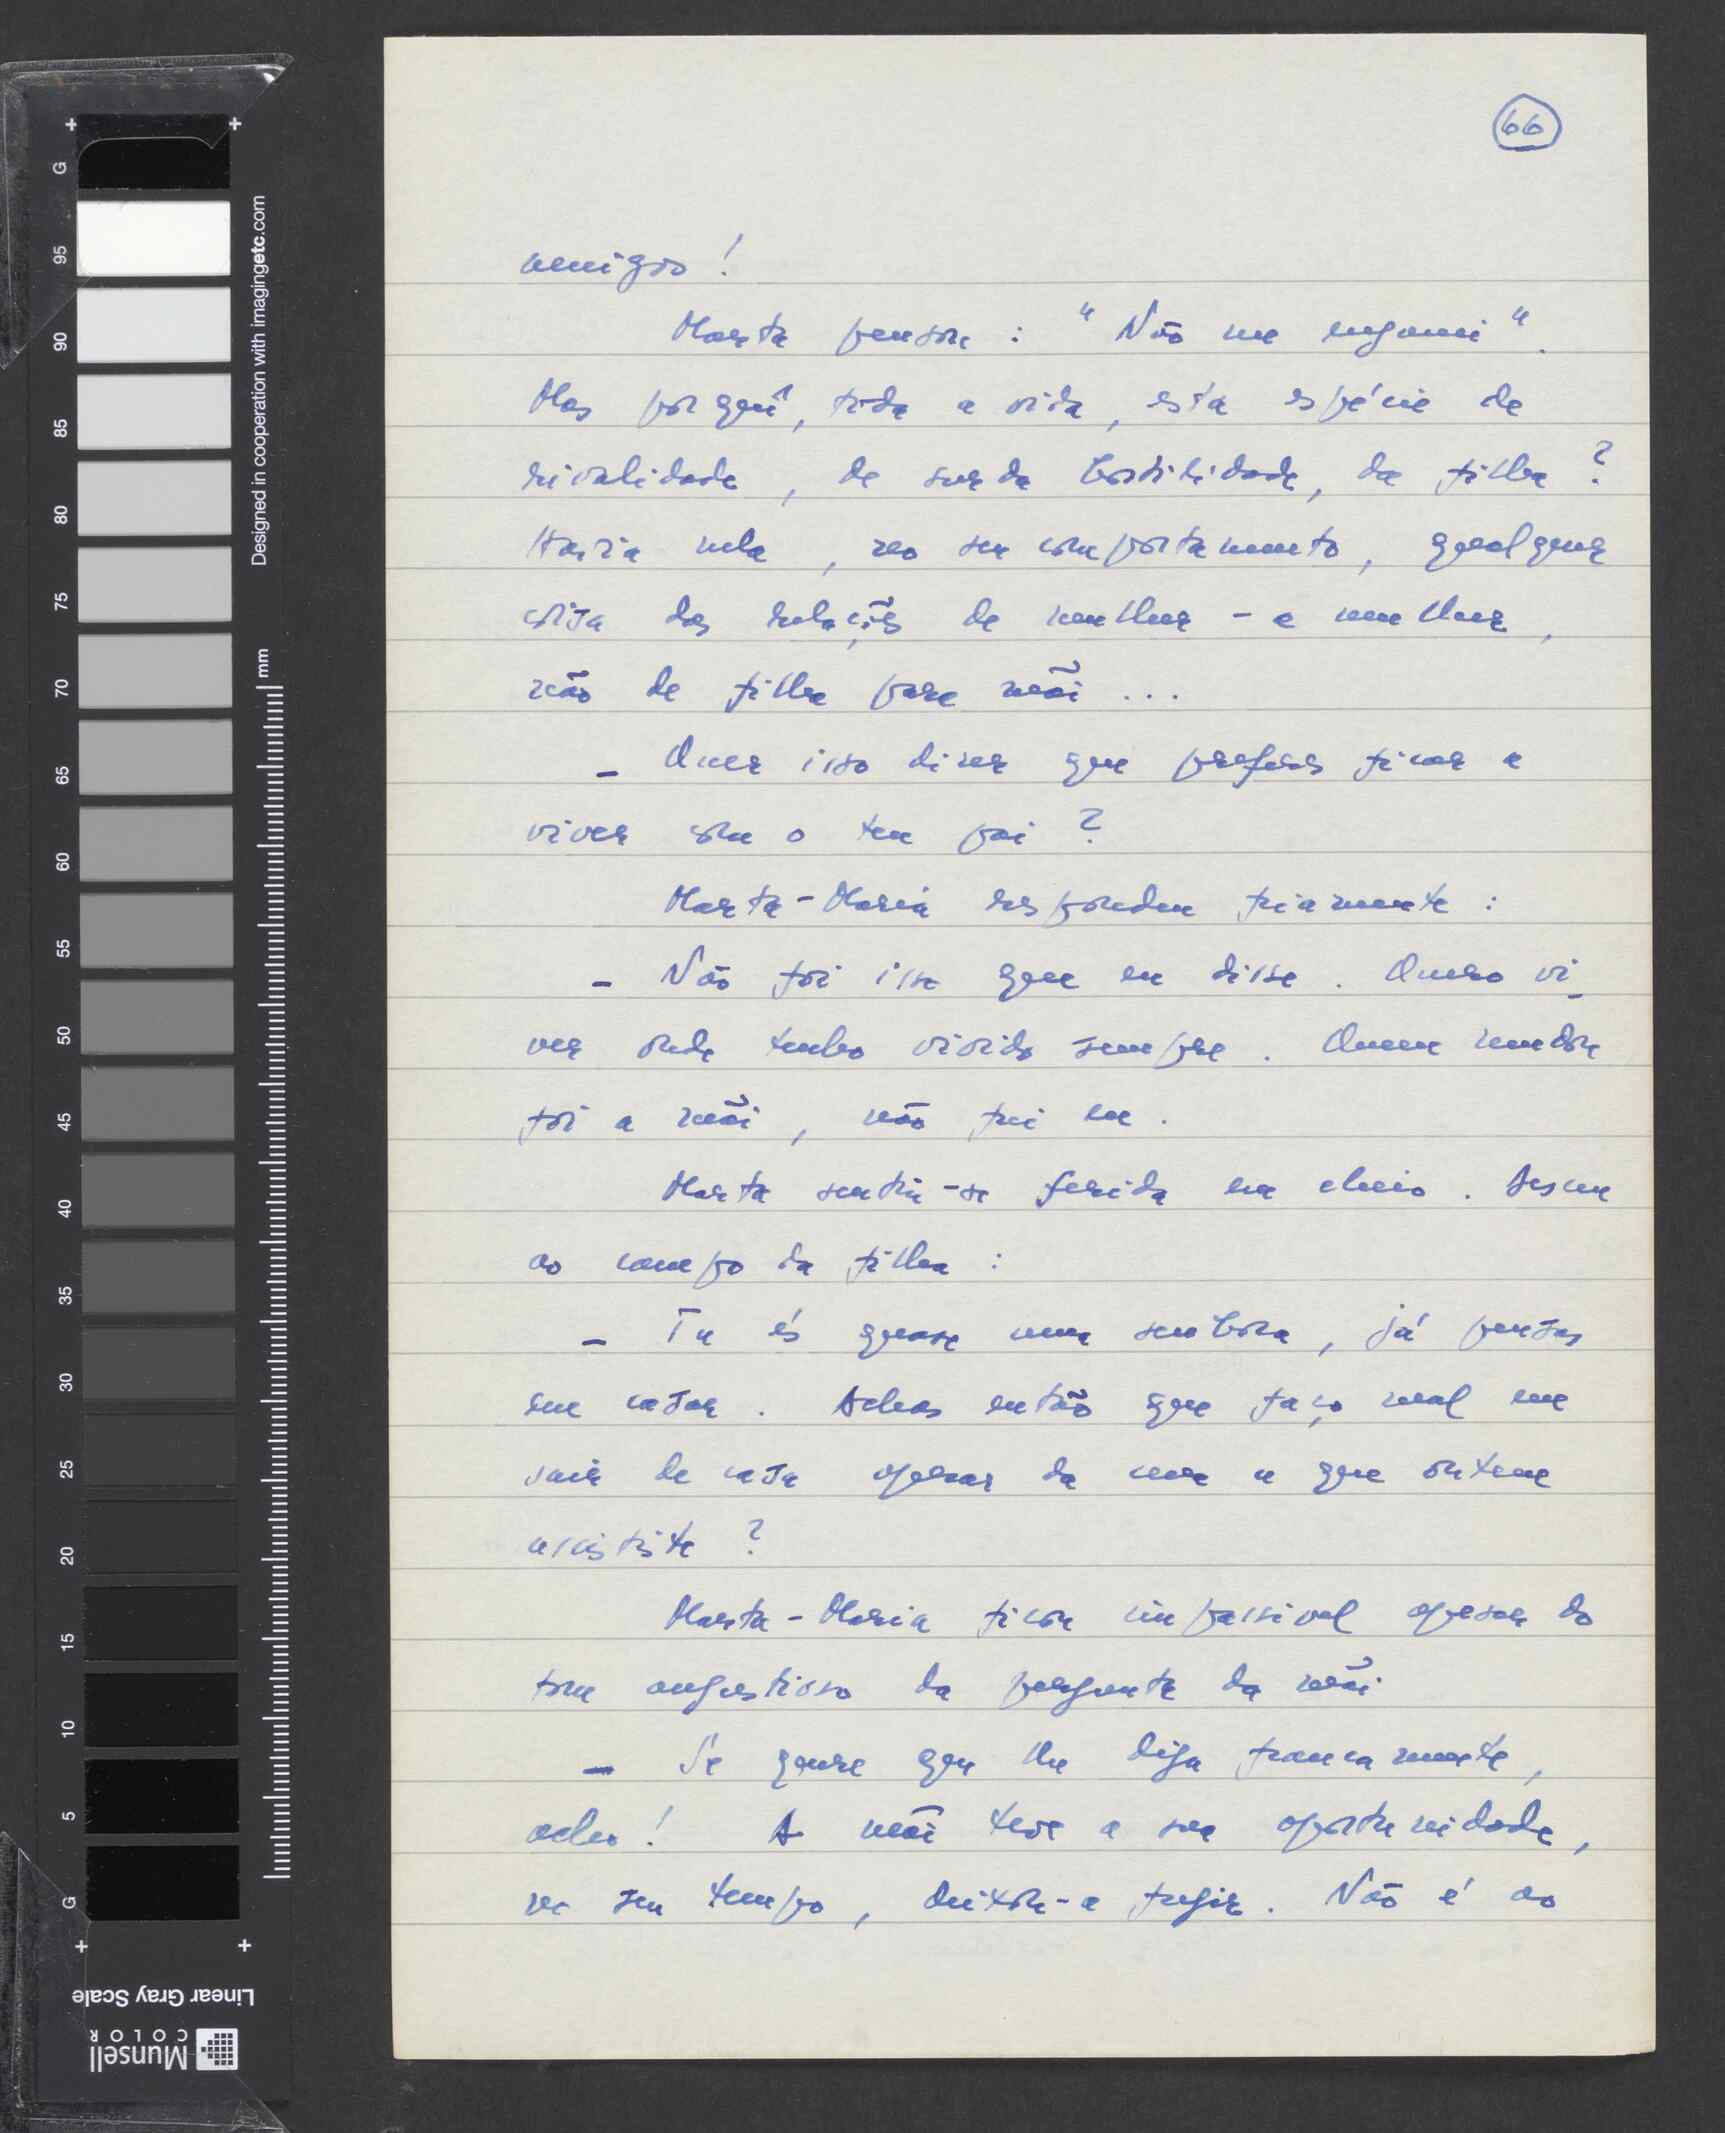 66
amigos!
Marta pensou: "Não me enganei".
Mas porquê, toda a vida, esta espécie de
rivalidade, de surda hostilidade, da filha?
Havia nela, no seu comportamento, qualquer
coisa das relações de mulher-a mulher,
não de filha para mãi...
- Quer isso dizer que preferes ficar a
viver com o teu pai?
Marta-Maria respondeu friamente:
- Não foi isso que eu disse. Quero vi-
ver onde tenho vivido sempre. Quem mudou
foi a mãi, não fui eu.
Marta sentiu-se ferida em cheio. Desceu
ao campo da filha:
- Tu és quase uma senhora, já pensas
em casar. Achas então que faço mal em
sair de casa apesar da cena a que ontem
assististe?
Marta-Maria ficou impassivel apesar do
tom angustioso da pergunta da mãi
- Se quere que lhe diga francamente,
acho! A mãi teve a sua oportunidade,
no seu tempo, deixou-a fugir. Não é ao
G
95
90
85
80
75
70
65
60
55
50
45
40
35
30
25
20
15
10
5
G
Designed in cooperation with imagingetc.com
mm
Linear Gray Scale
Munsell
COLOR